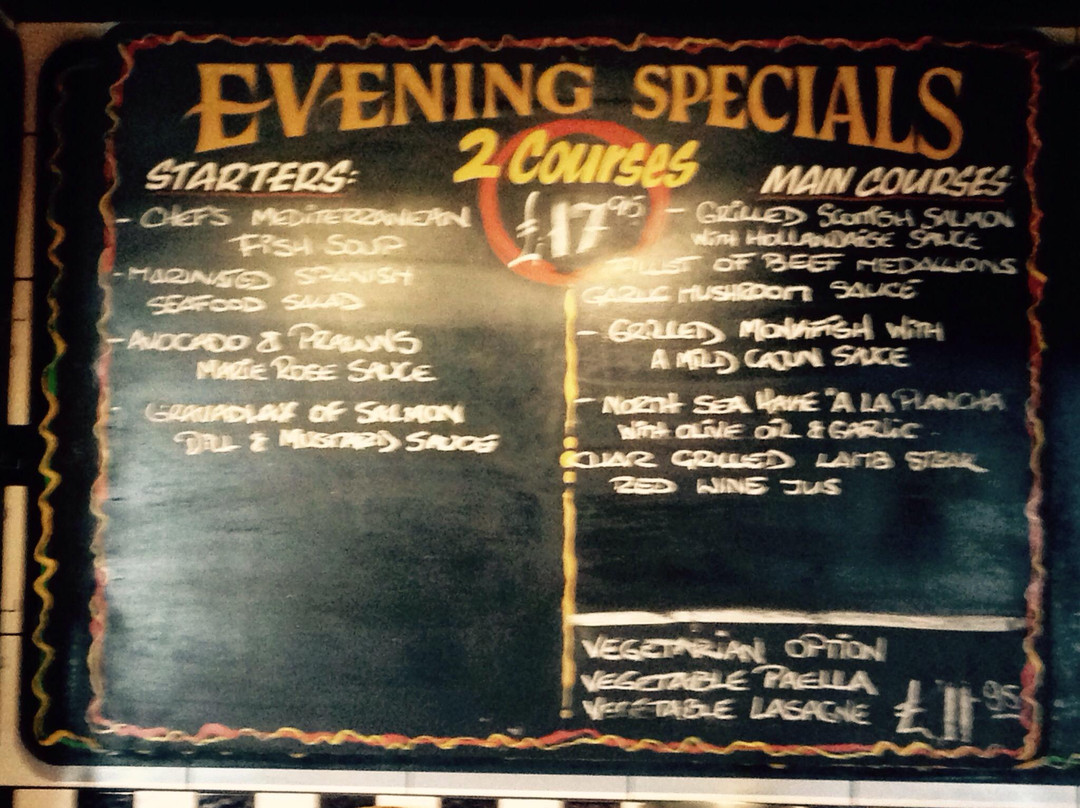 EVENING SPECIALS
2 Courses
£17.95
STARTERS:
- CHEF'S MEDITERRANEAN
FISH SOUP
- MARINATED SPANISH
SEAFOOD SALAD
- AVOCADO & PRAWNS
MARIE ROSE SAUCE
- GRAVADLAX OF SALMON
DILL & MUSTARD SAUCE
MAIN COURSES
- GRILLED SCOTTISH SALMON
WITH HOLLANDAISE SAUCE
FILLET OF BEEF MEDALLIONS
GARLIC MUSHROOM SAUCE
- GRILLED MONKFISH WITH
A MILD CAJUN SAUCE
- NORTH SEA HAKE "A LA PLANCHA
WITH OLIVE OIL & GARLIC
CHAR GRILLED LAMB STEAK
RED WINE JUS
VEGETARIAN OPTION
VEGETABLE PAELLA
VEGETABLE LASAGNE £11.95